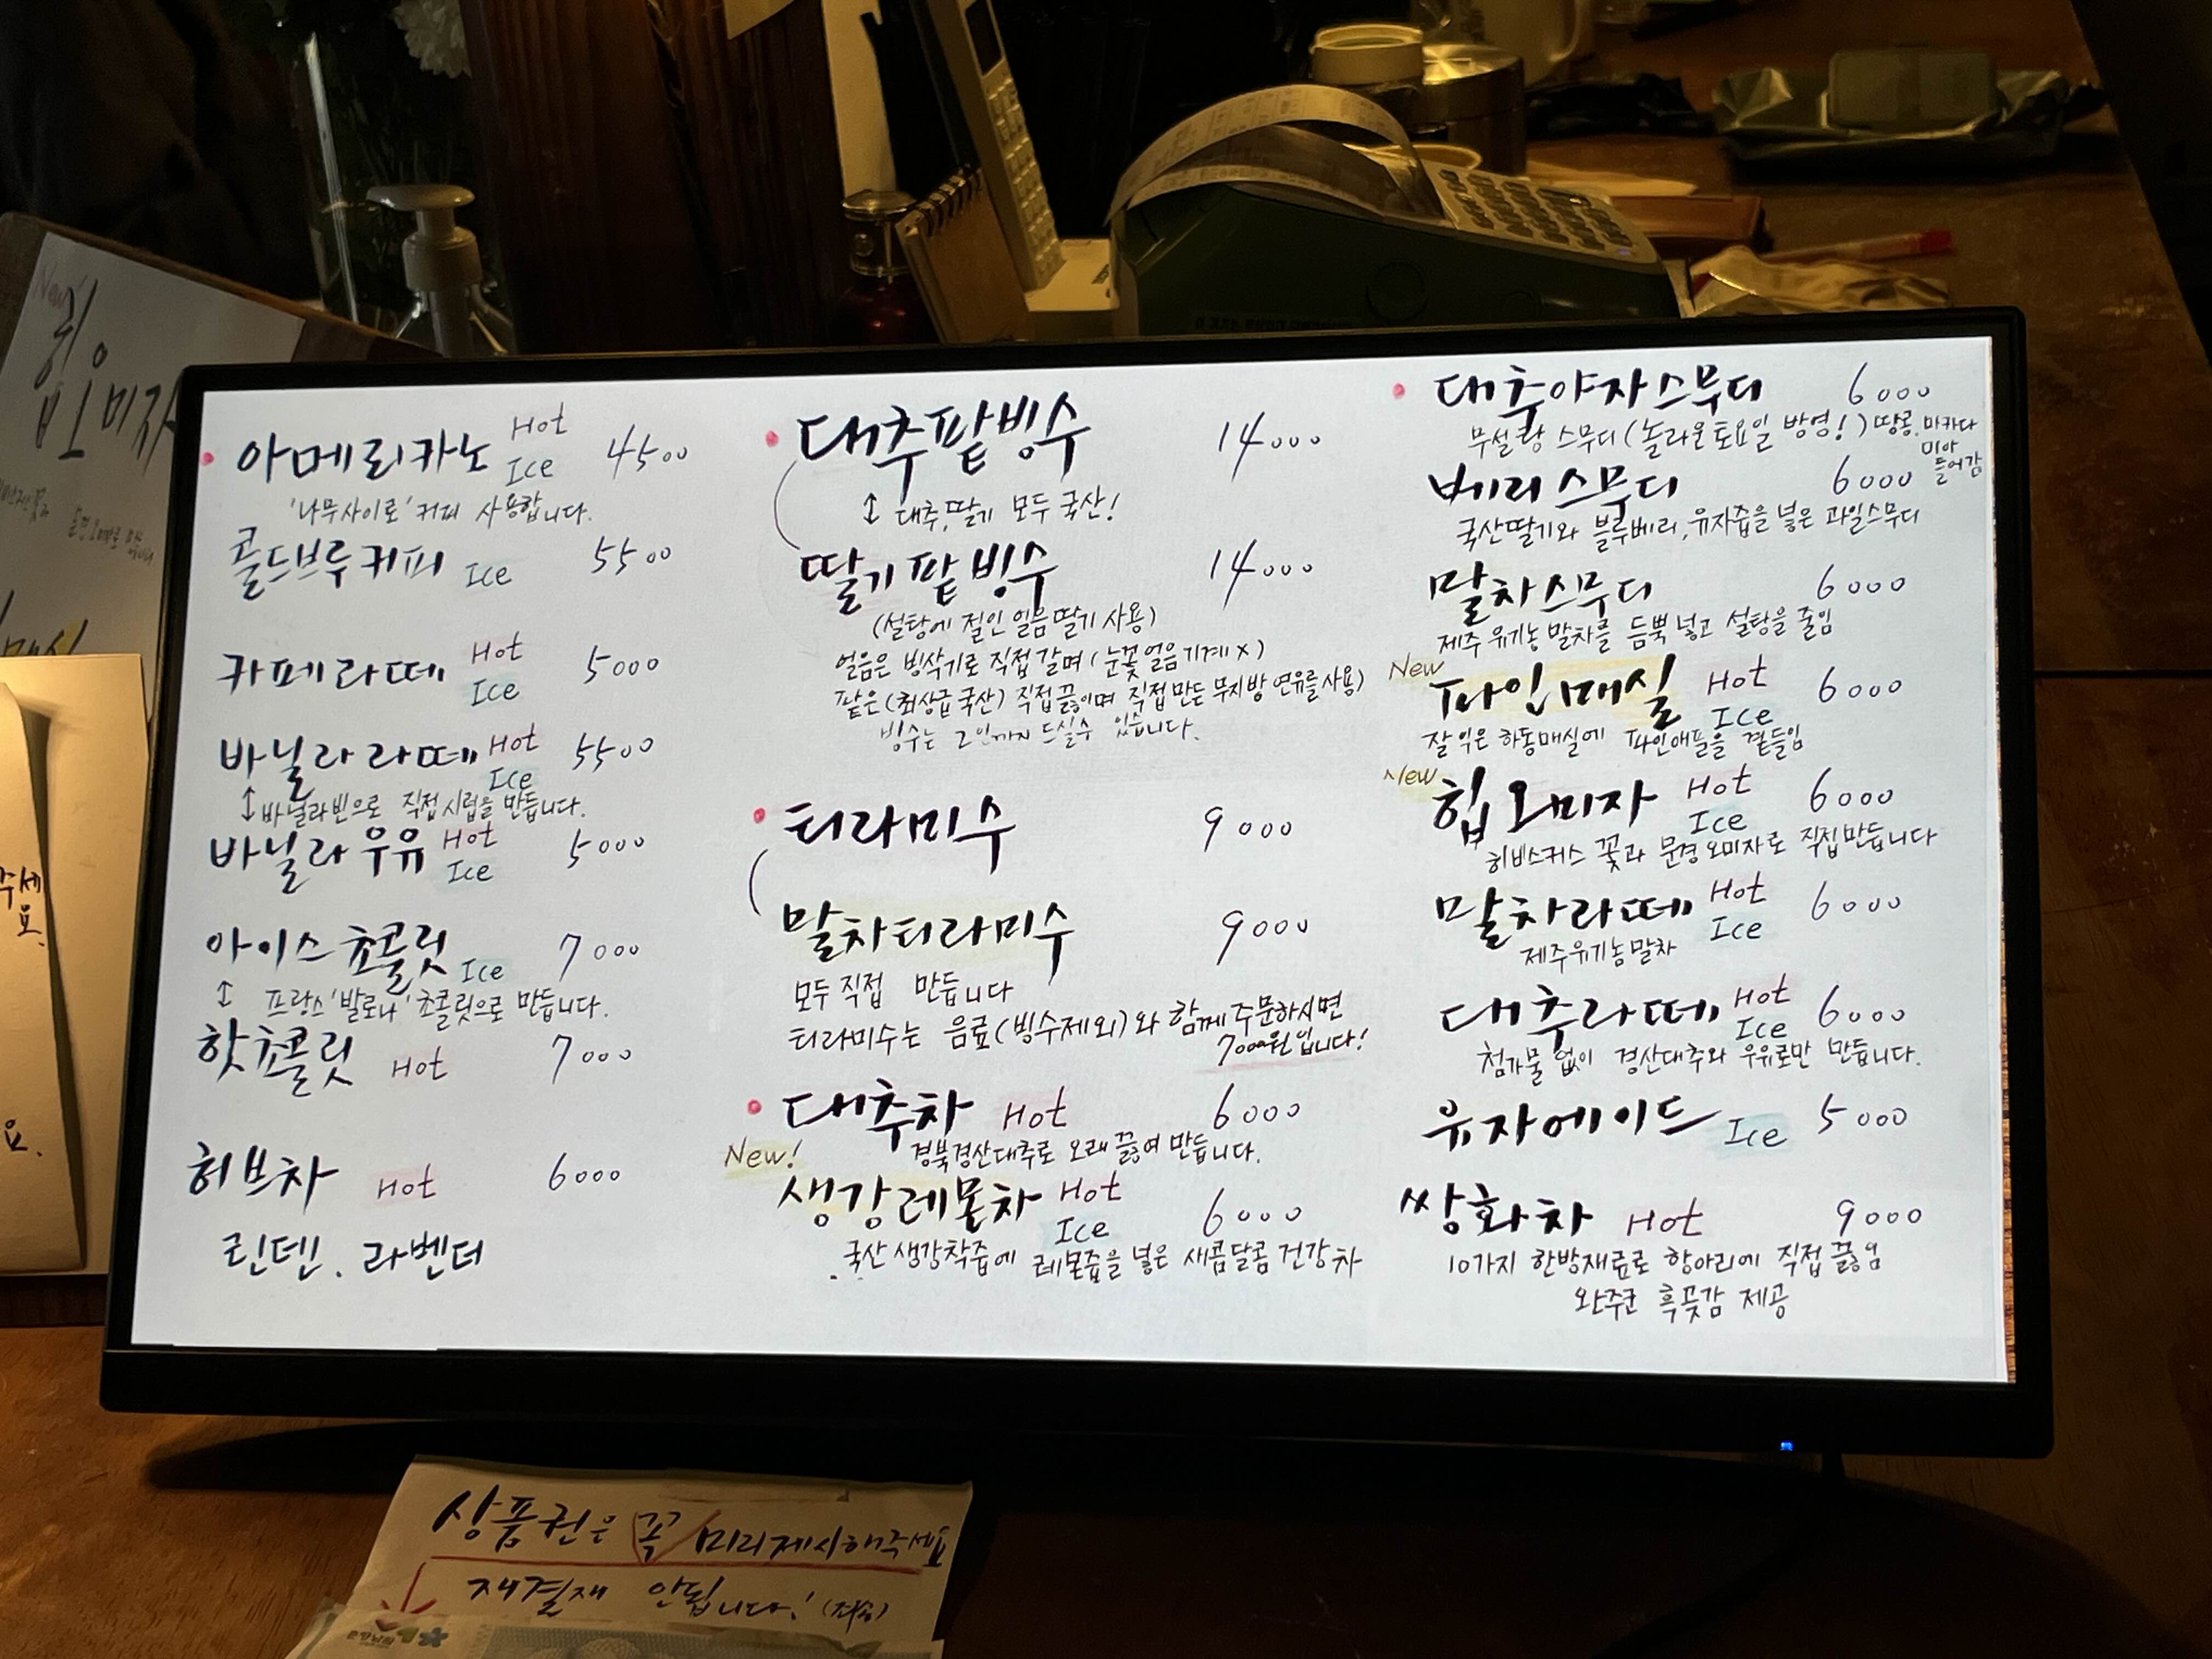 아메리카노 Hot Ice 4500
'나무사이로' 커피 사용합니다.
콜드브루커피 Ice 5500
카페라떼 Hot Ice 5000
바닐라라떼 Hot Ice 5500
↕ 바닐라빈으로 직접 시럽을 만듭니다.
바닐라우유 Hot Ice 5000
아이스쵸콜릿 Ice 7000
↕ 프랑스 '발로나' 쵸콜릿으로 만듭니다.
핫쵸콜릿 Hot 7000
허브차 Hot 6000
린덴. 라벤더
대추팥빙수 14000
↕ 대추, 딸기 모두 국산!
딸기팥빙수 14000
(설탕에 절인 얼음딸기 사용)
얼음은 빙삭기로 직접 갈며 (눈꽃얼음기계 x)
팥은 (최상급국산) 직접 끓이며 직접 만든 무지방 연유를 사용)
빙수는 2인까지 드실수 있습니다.
티라미수 9000
말차티라미수 9000
모두 직접 만듭니다
티라미수는 음료(빙수제외)와 함께 주문하시면
7000원입니다!
대추차 Hot 6000
경북경산대추로 오래 끓여 만듭니다.
New!
생강레몬차 Hot Ice 6000
국산 생강착즙에 레몬즙을 넣은 새콤달콤 건강차
대추야자스무디 6000
무설탕 스무디 (놀라운토요일 방영!) 땅콩, 마카다
미아
들어감
베리스무디 6000
국산딸기와 블루베리, 유자즙을 넣은 과일스무디
말차스무디 6000
제주 유기농 말차를 듬뿍 넣고 설탕을 줄임
New
파인매실 Hot Ice 6000
잘 익은 하동매실에 파인애플을 곁들임
New
힙오미자 Hot Ice 6000
히비스커스 꽃과 문경오미자로 직접만듭니다
말차라떼 Hot Ice 6000
제주유기농말차
대추라떼 Hot Ice 6000
첨가물 없이 경산대추와 우유로만 만듭니다.
유자에이드 Ice 5000
쌍화차 Hot 9000
10가지 한방재료로 항아리에 직접 끓임
완주군 흑곶감 제공
New
힙오미자
주세
요.
요.
상품권은 꼭 미리제시해주세요
재결재 안됩니다! (죄송)